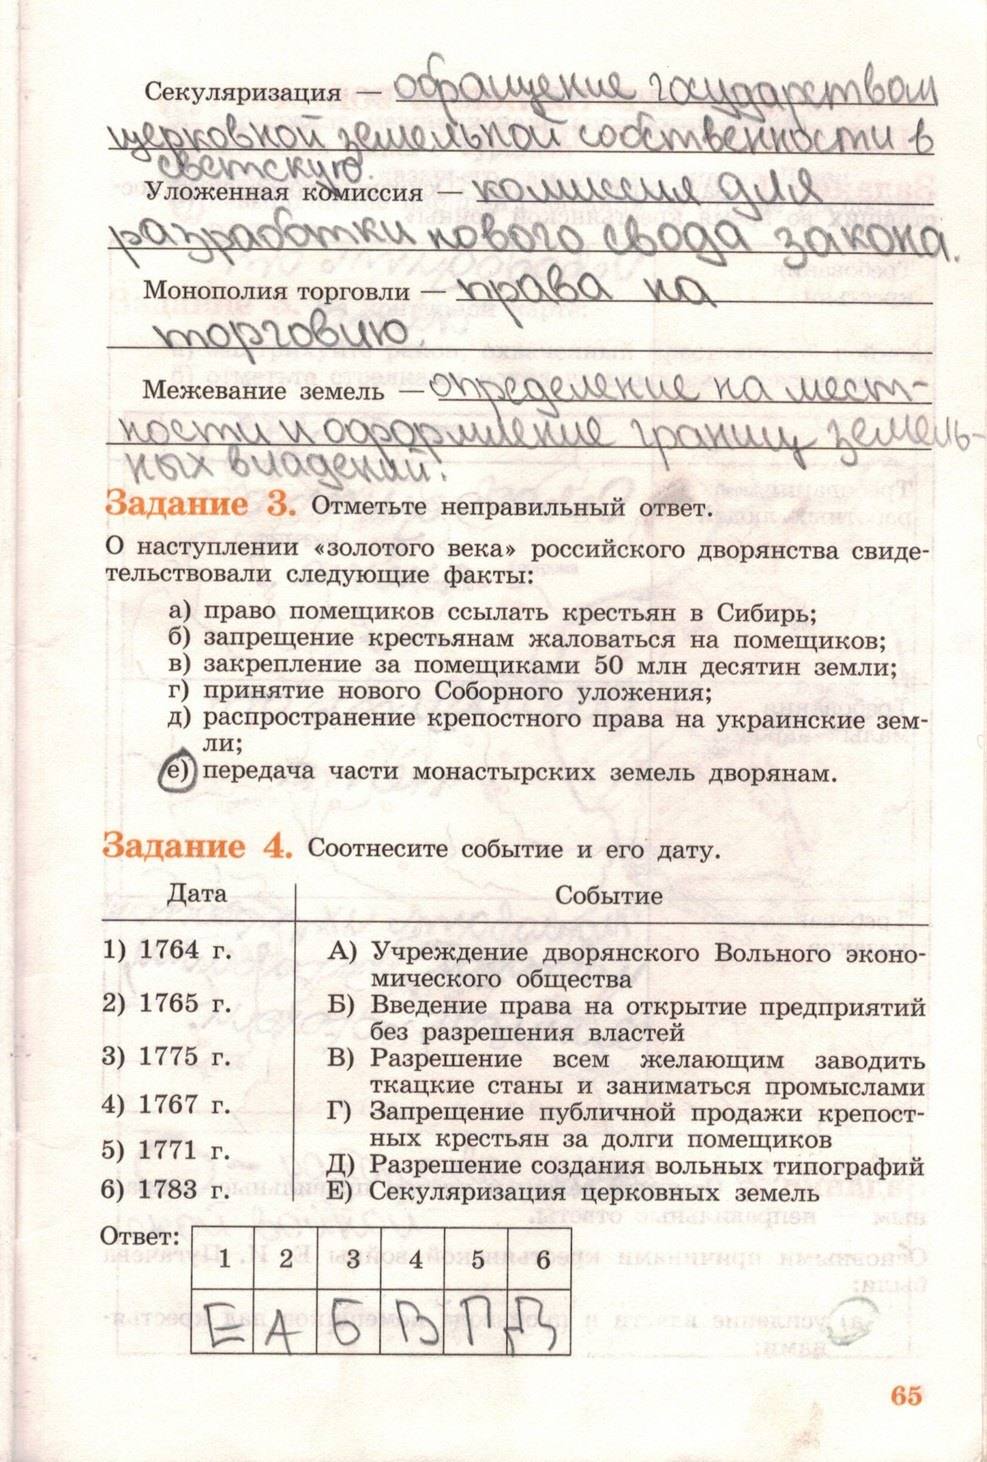 Секуляризация — обращение государством
церковной земельной собственности в
светскую.
Уложенная комиссия — комиссия для
разработки нового свода закона.
Монополия торговли — права на
торговлю.
Межевание земель — определение на мест-
ности и оформление границ земель-
ных владений.
Задание 3. Отметьте неправильный ответ.
О наступлении «золотого века» российского дворянства свиде-
тельствовали следующие факты:
а) право помещиков ссылать крестьян в Сибирь;
б) запрещение крестьянам жаловаться на помещиков;
в) закрепление за помещиками 50 млн десятин земли;
г) принятие нового Соборного уложения;
д) распространение крепостного права на украинские зем-
ли;
е) передача части монастырских земель дворянам.
Задание 4. Соотнесите событие и его дату.
Дата Событие
1) 1764 г. А) Учреждение дворянского Вольного эконо-
мического общества
2) 1765 г. Б) Введение права на открытие предприятий
без разрешения властей
3) 1775 г. В) Разрешение всем желающим заводить
ткацкие станы и заниматься промыслами
4) 1767 г. Г) Запрещение публичной продажи крепост-
ных крестьян за долги помещиков
5) 1771 г. Д) Разрешение создания вольных типографий
6) 1783 г. Е) Секуляризация церковных земель
Ответ:
1 2 3 4 5 6
Е А Б В Г Д
65